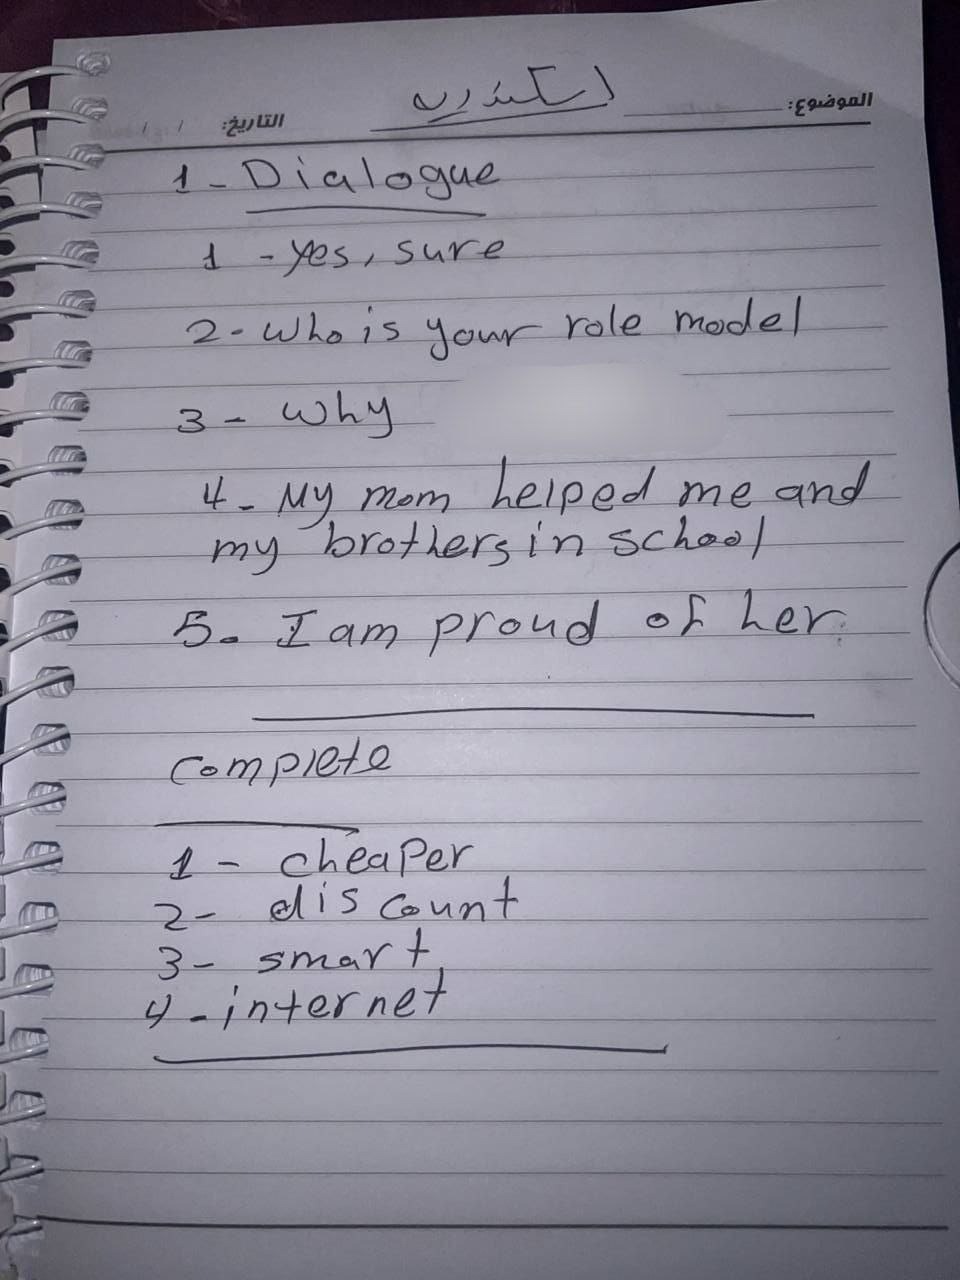 الموضوع: اسكندريه التاريخ: / /
1 - Dialogue
1 - yes, sure
2 - who is your role model
3 - why
4 - My mom helped me and
my brothers in school
5 - I am proud of her.
complete
1 - cheaper
2 - discount
3 - smart
4 - internet